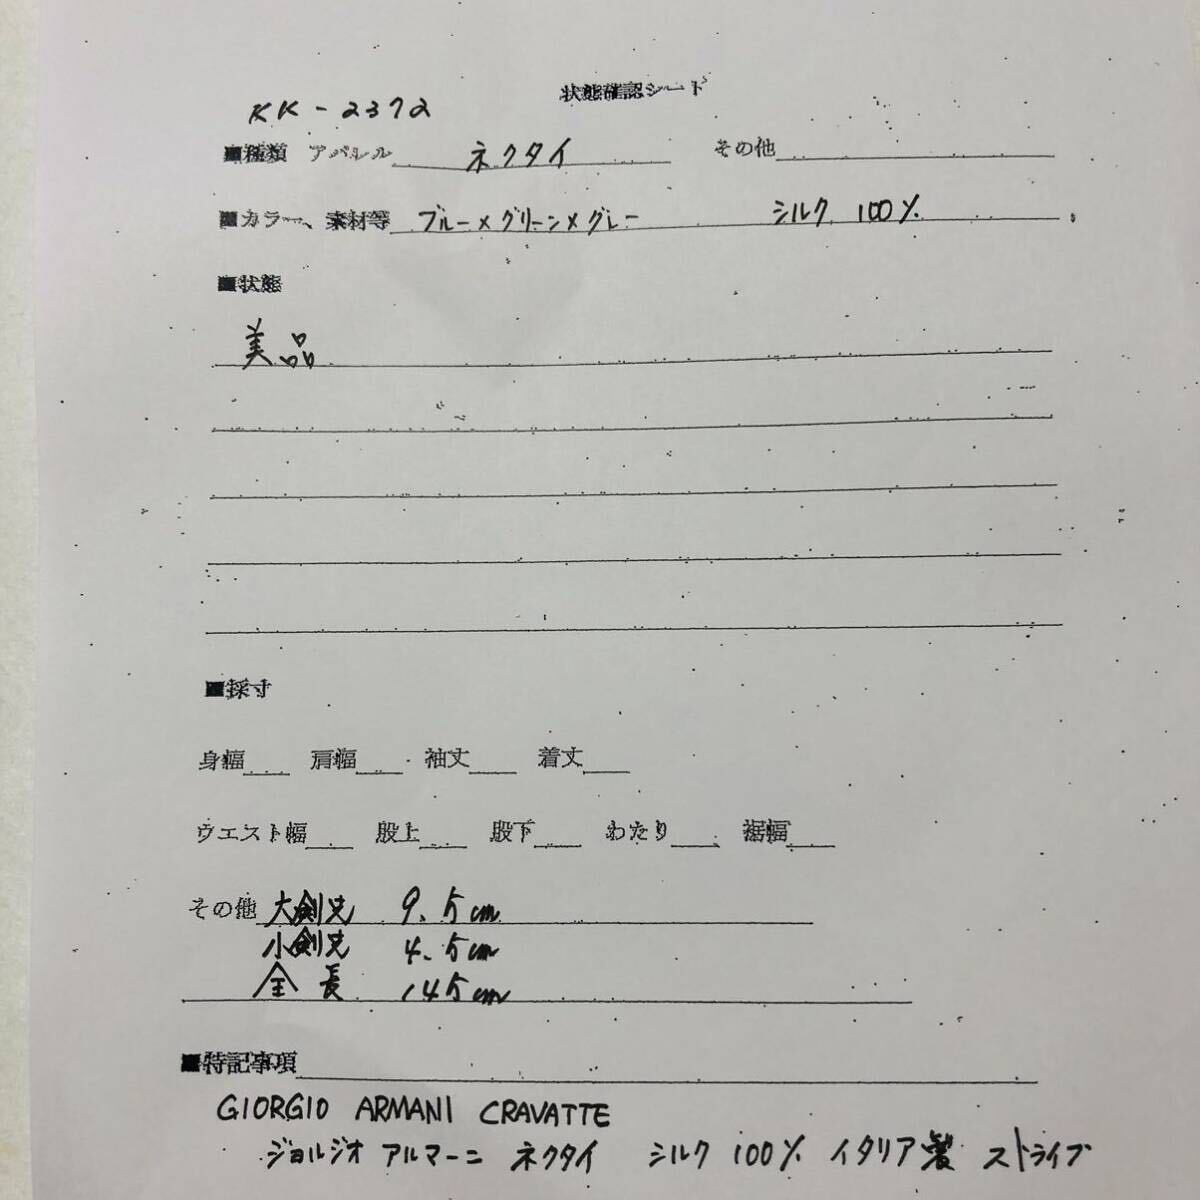 状態確認シート
KK-2372
■種類 アパレル ネクタイ その他
■カラー、素材等 ブルー×グリーン×グレー シルク 100%
■状態
美品
■採寸
身幅 肩幅 袖丈 着丈
ウエスト幅 股上 股下 わたり 裾幅
その他 大剣先 9.5cm
小剣先 4.5cm
全長 145cm
■特記事項
GIORGIO ARMANI CRAVATTE
ジョルジオ アルマーニ ネクタイ シルク 100% イタリア製 ストライプ